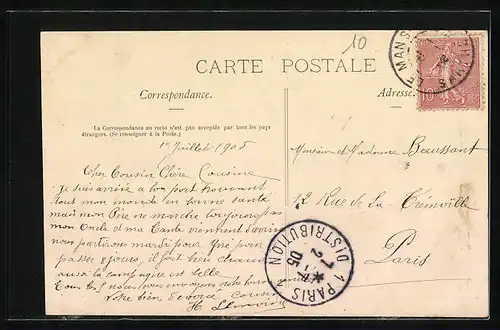 10
CARTE POSTALE
LE MANS
Correspondance.
Adresse
10
La Correspondance au recto n'est pas acceptée par tous les pays
étrangers. (Se renseigner à la Poste.)
1er Juillet 1905
Cher Cousin Chère Cousine
Je suis arrivé à bon port trouvant
tout mon monde en bonne santé
mais mon Père ne marche toujours pas
mon Oncle et ma Tante viennent
nous partirons mardi pour pour
passer 8 jours, il fait bien chaud
aussi la campagne est belle
Tous les nous vous envoyons
Votre bien dévoué Cousin
H.
Monsieur et Madame Boussant
12 Rue de La
Paris
1 PARIS 1
DISTRIBUTION
7
2 -7
05